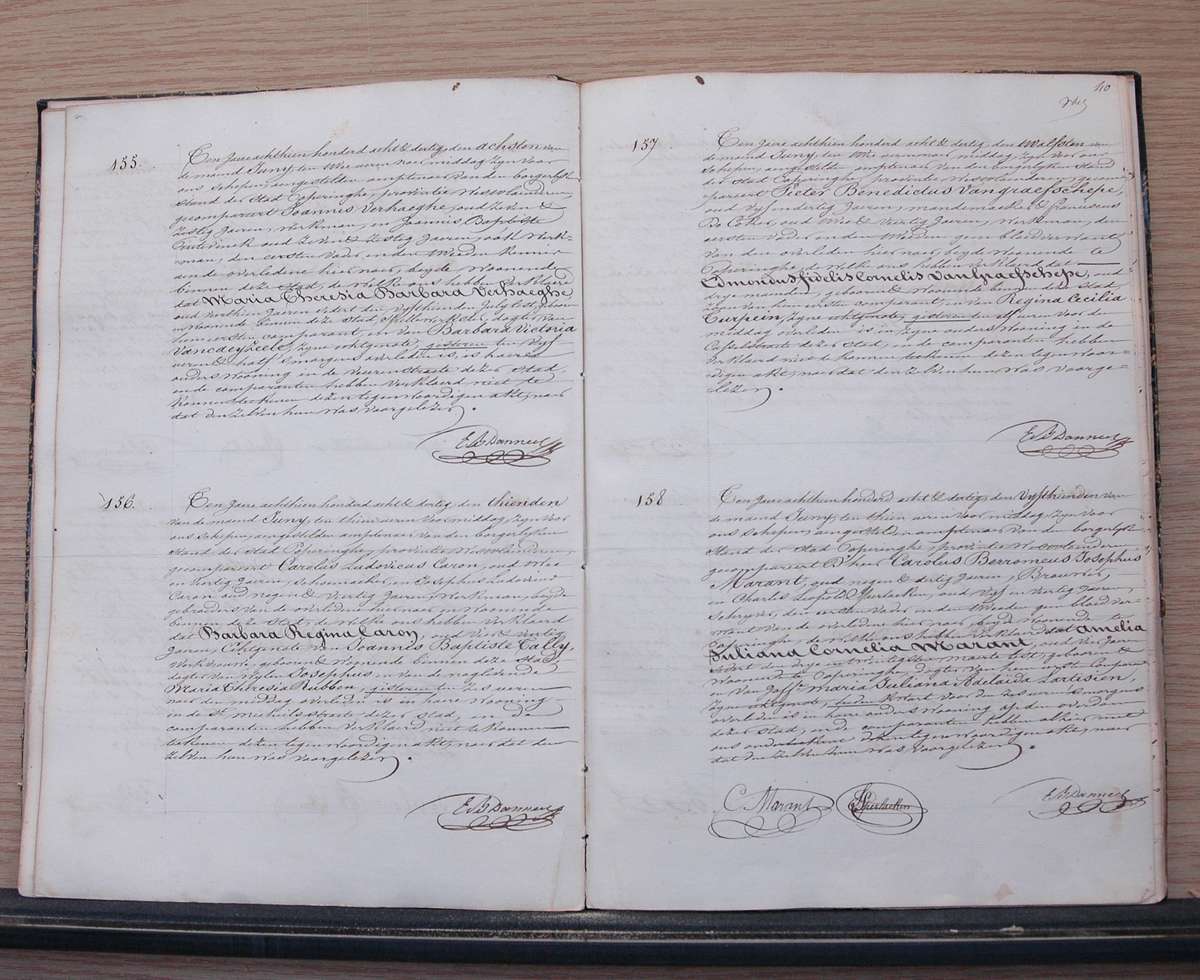 155.
Ten Jare achthien honderd acht & dertig, den achsten van
de maend Juny, ten Wie uren naer middag zyn voor
ons Schepen, aengestelden amptenaer van den borgerlyken
stand der Stad Poperinghe, provintie Westvlaenderen,
gecompareert Joannis Verhaeghe, oud Zeven &
Zestig Jaeren, Werkman, en Joannis Baptiste
oud Zeven & Zestig Jaeren, ook Werk-
man, den eersten vader en den Tweeden Kenner
van de overledene hier naer, beyde Woonende
binnen deze Stad, de Welke ons hebben Verklaerd
dat Maria Theresia Barbara Verhaeghe
oud Veerthien Jaeren
en Woonende binnen deze Stad, dogter van
den eersten comparant en van Barbara Victoria
Vandeyzeele, zyne echtgenote, gisteren ten Vyf
uren & half 's morgens overleden is, in haere
ouders Wooning in de Veurnestraete dezer Stad,
en de comparanten hebben Verklaerd niet te
Konnen dezen tegenwoordigen akt, naer
dat den Zelven hun Was Voorgelezen.
156.
Ten Jare achthien honderd acht & dertig, den thienden
van de maend Juny, ten thien uren voor middag, zyn voor
ons Schepen, aengestelden amptenaer van den borgerlyken
stand der Stad Poperinghe, provintie Westvlaenderen,
gecompareert Carolus Ludovicus Caron, oud Wee
en Veertig Jaeren, Schoenmaeker, en Josephus Ludovicus
Caron oud negen & Veertig Jaeren, Werkman, beyde
gebroeders van de overledene hier naer en Woonende
binnen deze Stad, de Welke ons hebben Verklaerd
dat Barbara Regina Caron, oud Vier & Veertig
Jaeren, Echtgenote van Joannes Baptiste Cally,
Werkvrouw, geboren & Woonende binnen deze Stad,
dogter van Wylen Josephus en van de nog levende
Maria Theresia Rubben, gisteren ten Zes uren
naer den middag overleden is in hare Wooning
in de St. Michielsstraete dezer Stad, en de
comparanten hebben Verklaerd niet te Konnen
tekenen dezen tegenwoordigen akt, naer dat den
Zelven hun Was Voorgelezen.
40
157
Ten Jare achthien honderd acht & dertig, den Twalfsten van
de maend Juny, ten Wie uren naer middag zyn voor ons
Schepen, aengestelden amptenaer van den borgerlyken Stand
der Stad Poperinghe, provintie Westvlaenderen, gecom-
pareert Pieter Benedictus Vangraefschepe,
oud Vyf en dertig Jaeren, mandemaker & Franciscus
De Coker, oud Wie & Veertig Jaeren, Werkman, den
eersten Vader en den Tweeden geen bloedverwant
van den overleden hier naer, beyde Woonende te
Poperinghe, de Welke ons hebben Verklaerd dat
Edmondus fidelis Cornelis Vangraefschepe, oud
drye maenden, geboren & Woonende binnen deze Stad
zone van den eersten comparant en van Regina Cecilia
Turpein, zyne echtgenote, gisteren ten uren voor de
middag overleden is in zyne ouders Wooning in de
Casselstraete dezer Stad, en de comparanten hebben
Verklaerd niet te konnen tekenen dezen tegenwoor-
digen akt, naer dat den Zelven hun Was Voorge-
lezen.
158
Ten Jare achthien honderd acht & dertig, den Vyfthienden van
de maend Juny, ten thien uren voor middag, zyn voor
ons Schepen, aengestelden amptenaer van den borgerlyken
stand der Stad Poperinghe, provintie Westvlaenderen
gecompareert D'heer Carolus Borromeus Josephus
Marant, oud negen & dertig Jaeren, Brouwer,
en Charles Leopold oud Vyf en Veertig Jaeren,
Schryver, den eersten vader en den Tweeden geen bloedver-
want van de overledene hier naer, beyde Woonende te
Poperinghe, de Welke ons hebben Verklaerd dat Amelia
Juliana Cornelia Marant, oud
den drye en twintigsten maerte lest, geboren &
Woonende te Poperinghe, dogter van den eersten Comparant
en van Jaffr. Maria Juliana Adelaida Lartisien,
zyne echtgenote, heden Kwart voor de zes uren 's morgens
overleden is in hare ouders Wooning op den
dezer Stad, en de comparanten alhier met
ons dezen tegenwoordigen akt, naer
dat den Zelven hun Was Voorgelezen.
C. Marant